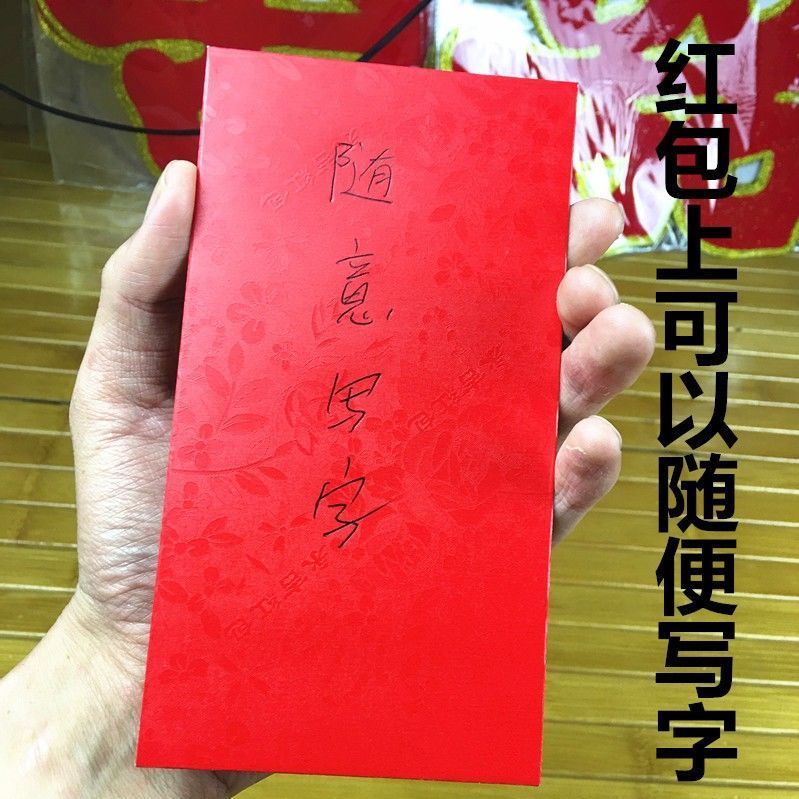 红包上可以随便写字
随意写字